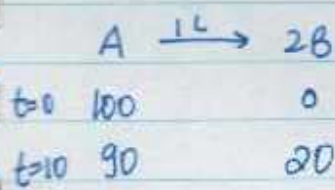 A 1L→ 2B
t=0 100 0
t=10 90 20